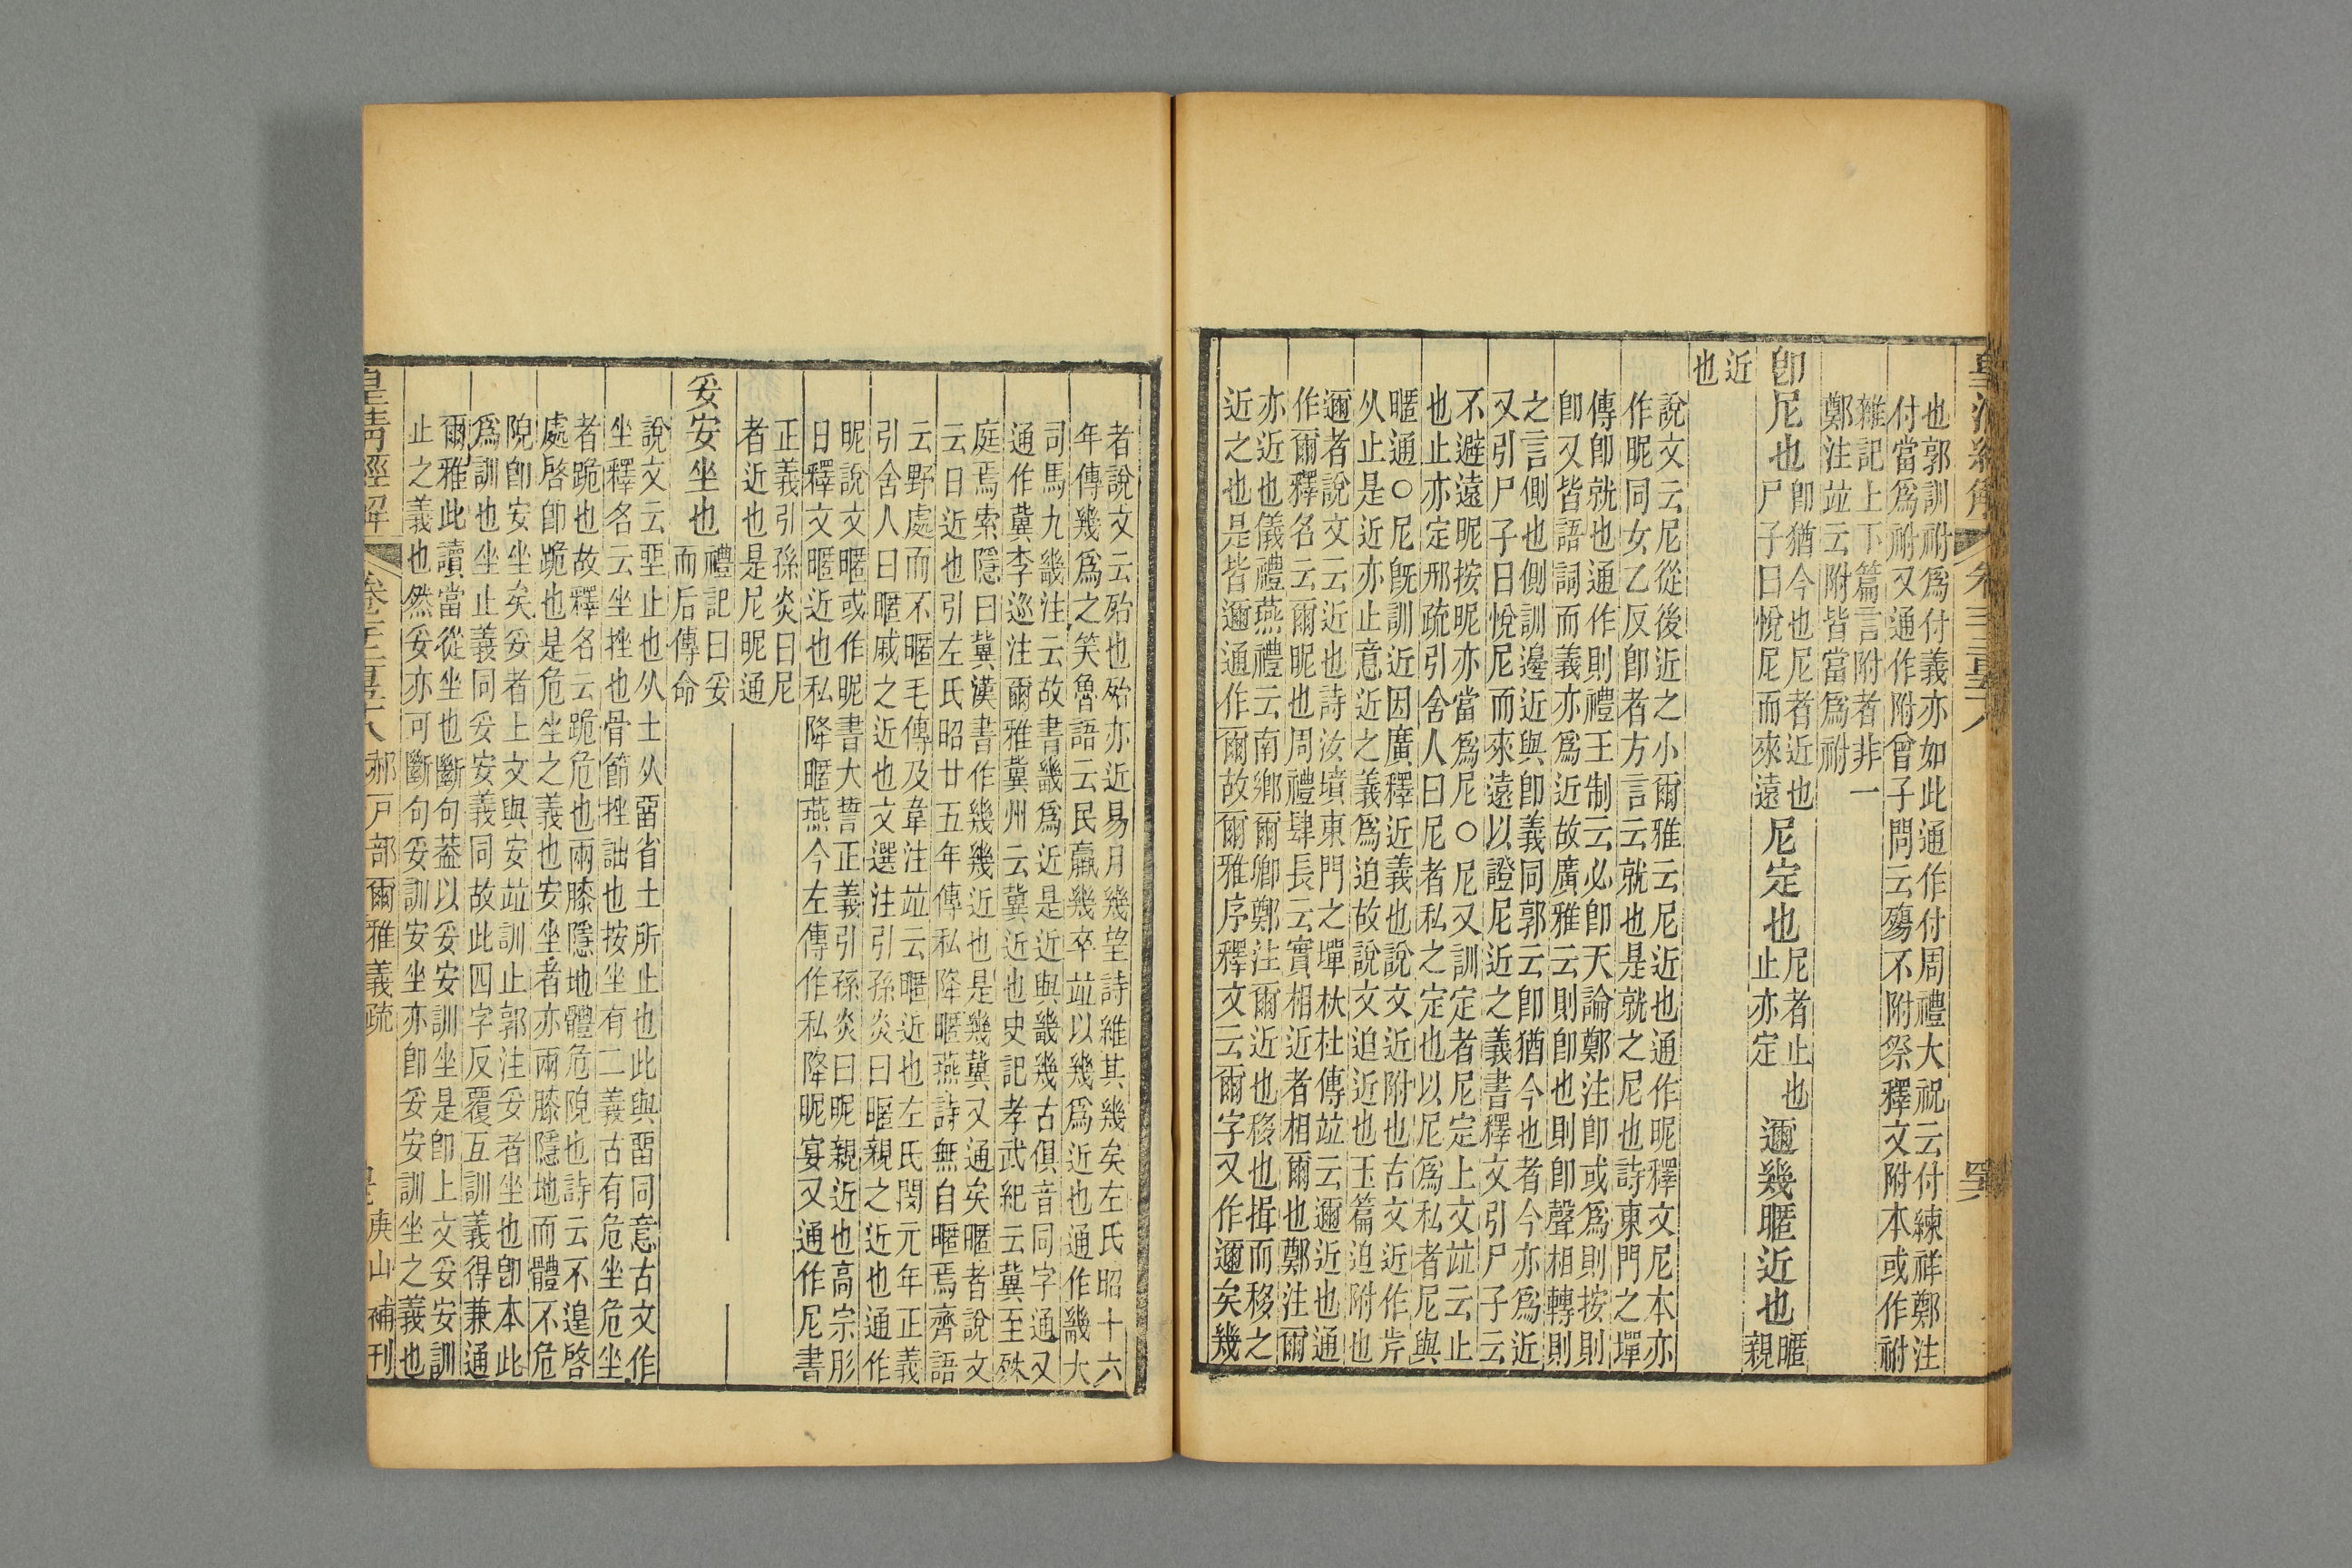 也郭訓祔爲付付義亦如此通作付周禮大祝云付練祥鄭注
付當爲祔又通作附曾子問云殤不附祭釋文附本或作祔
雜記上下篇言附者非一
鄭注竝云附皆當爲祔
卽尼也卽猶今也尼者近也
尸子曰悅尼而來遠尼定也尼者止也
止亦定邇幾暱近也暱
親
近
也
說文云尼從後近之小爾雅云尼近也通作昵釋文尼本亦
作昵同女乙反卽者方言云就也是就之尼也詩東門之墠
傳卽就也通作則禮王制云必卽天論鄭注卽或爲則按則
卽又皆語詞而義亦爲近故廣雅云則卽也則卽聲相轉則
之言側也側訓邊近與卽義同郭云卽猶今也者今亦爲近
又引尸子曰悅尼而來遠以證尼近之義書釋文引尸子云
不避遠昵按昵亦當爲尼○尼又訓定者尼定上文竝云止
也止亦定邢疏引舍人曰尼者私之定也以尼爲私者尼與
暱通○尼旣訓近因廣釋近義也說文近附也古文近作岸
从止是近亦止意近之義爲迫故說文迫近也玉篇迫附也
邇者說文云近也詩汝墳東門之墠杕杜傳竝云邇近也通
作爾釋名云爾昵也周禮肆長云實相近者相爾也鄭注爾
亦近也儀禮燕禮云南鄉爾卿鄭注爾近也移也揖而移之
近之也是皆邇通作爾故爾雅序釋文云爾字又作邇矣幾
者說文云殆也殆亦近易月幾望詩維其幾矣左氏昭十六
年傳幾爲之笑魯語云民羸幾卒竝以幾爲近也通作畿大
司馬九畿注云故書畿爲近是近與畿幾古俱音同字通又
通作冀李巡注爾雅冀州云冀近也史記孝武紀云冀至殊
庭焉索隱曰冀漢書作幾幾近也是幾冀又通矣暱者說文
云日近也引左氏昭廿五年傳私降暱燕詩無自暱焉齊語
云野處而不暱毛傳及韋注竝云暱近也左氏閔元年正義
引舍人曰暱戚之近也文選注引孫炎曰暱親之近也通作
昵說文暱或作昵書大誓正義引孫炎曰昵親近也高宗肜
日釋文暱近也私降暱燕今左傳作私降昵宴又通作尼書
正義引孫炎曰尼
者近也是尼昵通
妥安坐也禮記曰妥
而后傳命
說文云堊止也从土从畱省土所止也此與畱同意古文作
坐釋名云坐挫也骨節挫詘也按坐有二義古有危坐危坐
者跪也故釋名云跪危也兩膝隱地體危隉也詩云不遑啓
處啓卽跪也是危坐之義也安坐者亦兩膝隱地而體不危
隉卽安坐矣妥者上文與安竝訓止郭注妥者坐也卽本此
爲訓也坐止義同妥安義同故此四字反覆互訓義得兼通
爾雅此讀當從坐也斷句葢以妥安訓坐是卽上文妥安訓
止之義也然妥亦可斷句妥訓安坐亦卽妥安訓坐之義也
皇淸經解 卷千二百五十八 郝戶部爾雅義疏 庚申補刊